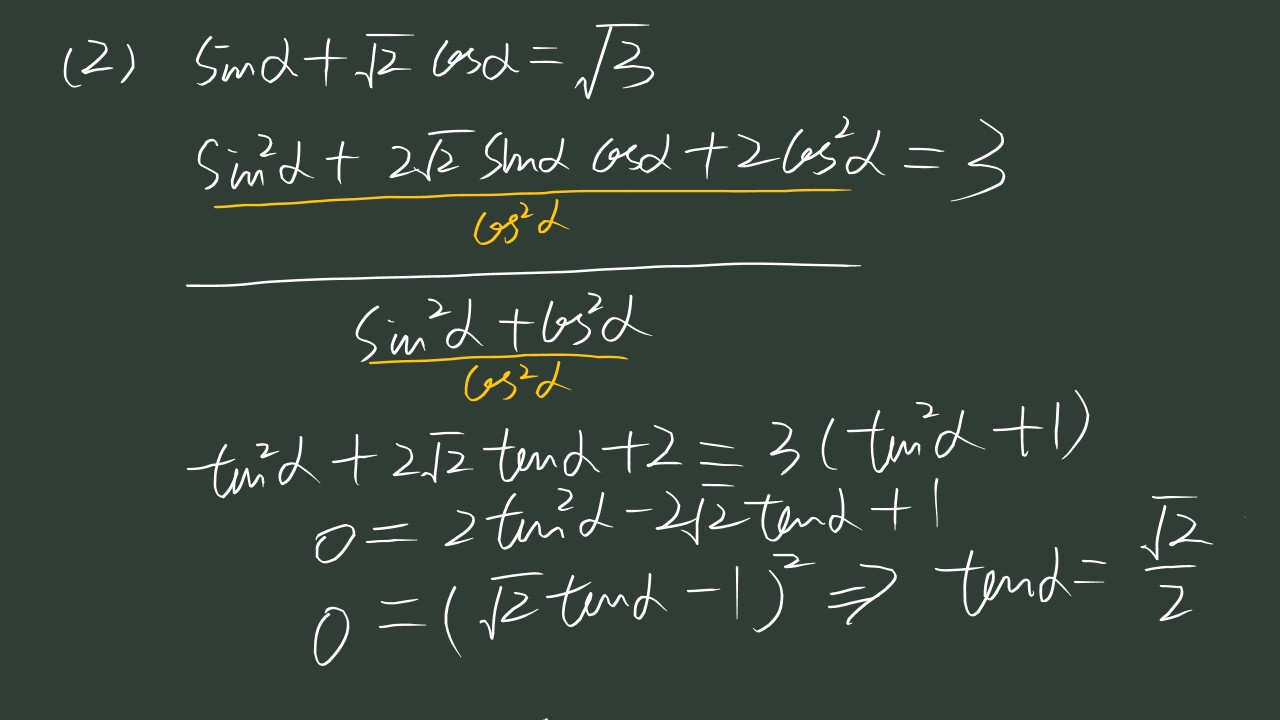 (2) sinα+√2 cosα=√3
sin²α+2√2 sinα cosα+2cos²α=3
cos²α
sin²α+cos²α
cos²α
tan²α+2√2 tanα+2=3(tan²α+1)
0=2tan²α-2√2tanα+1
0=(√2tanα-1)²⇒ tanα=√2/2